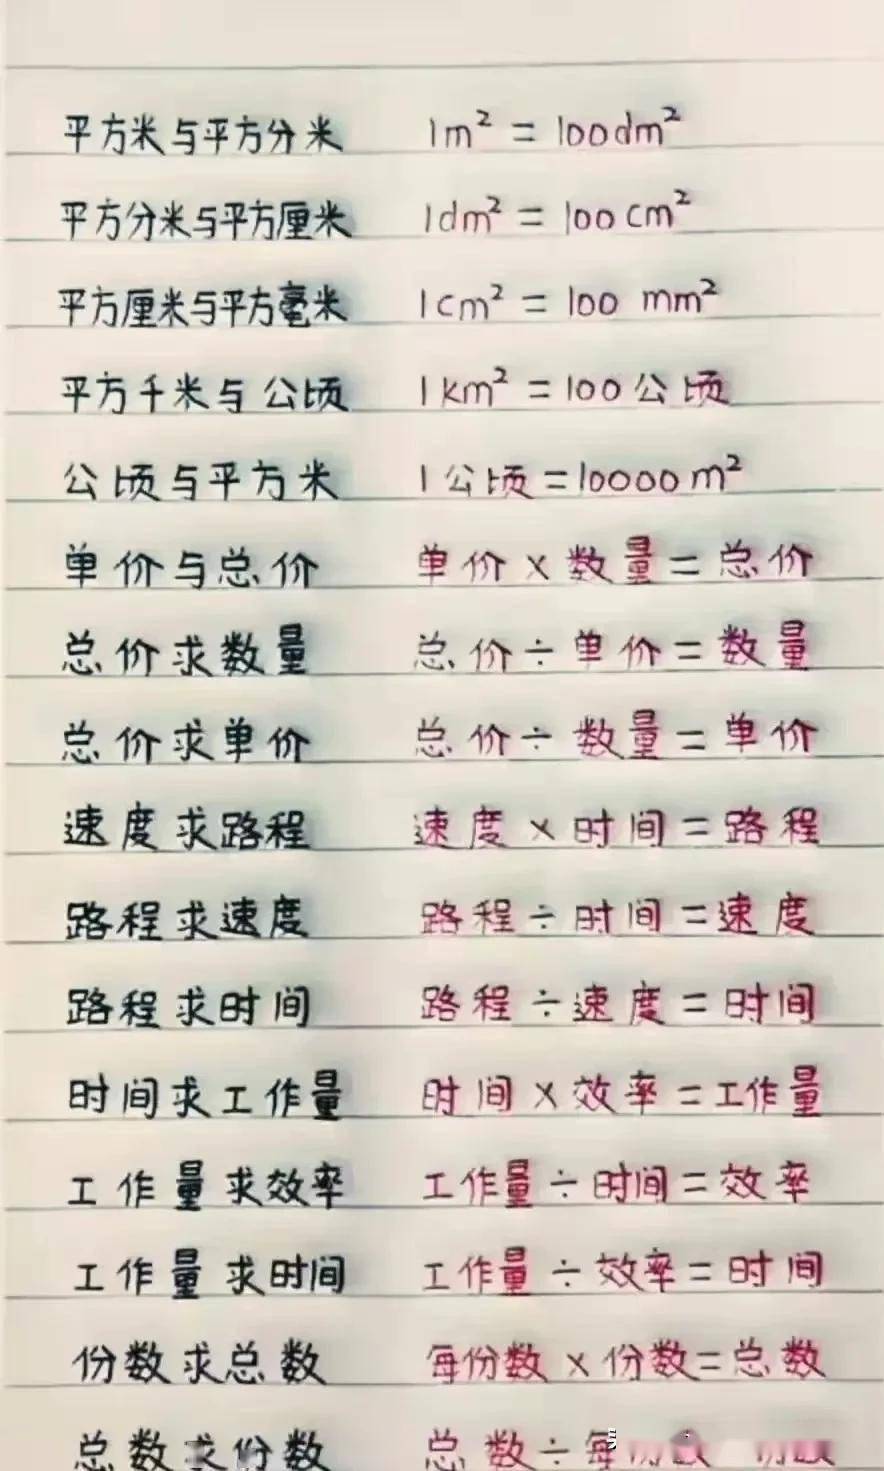 平方米与平方分米 1m² = 100dm²
平方分米与平方厘米 1dm² = 100cm²
平方厘米与平方毫米 1cm² = 100 mm²
平方千米与公顷 1km² = 100公顷
公顷与平方米 1公顷=10000m²
单价与总价 单价×数量=总价
总价求数量 总价÷单价=数量
总价求单价 总价÷数量=单价
速度求路程 速度×时间=路程
路程求速度 路程÷时间=速度
路程求时间 路程÷速度=时间
时间求工作量 时间×效率=工作量
工作量求效率 工作量÷时间=效率
工作量求时间 工作量÷效率=时间
份数求总数 每份数×份数=总数
总数求份数 总数÷每